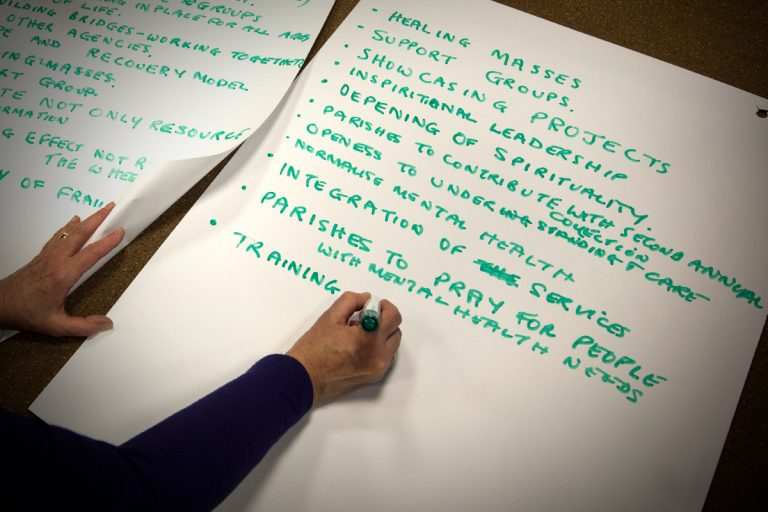 OF LIFE.
GROUPS
ING IN PLACE FOR ALL AGES
UILDING BRIDGES - WORKING TOGETHER
OTHER AGENCIES.
PE AND RECOVERY MODEL
ING MASSES.
RT GROUP.
TE NOT ONLY RESOURCE
ORMATION
G EFFECT NOT R
THE WHEE
Y OF FRAI
• HEALING MASSES
• SUPPORT GROUPS.
• SHOWCASING PROJECTS
• INSPIRITIONAL LEADERSHIP
• DEPENING OF SPIRITUALITY.
• PARISHES TO CONTRIBUTE WITH SECOND ANNUAL
COLLECTION
• OPENESS TO UNDERSTANDING & CARE
• NORMALISE MENTAL HEALTH
• INTEGRATION OF SERVICES
• PARISHES TO PRAY FOR PEOPLE
WITH MENTAL HEALTH NEEDS
• TRAINING